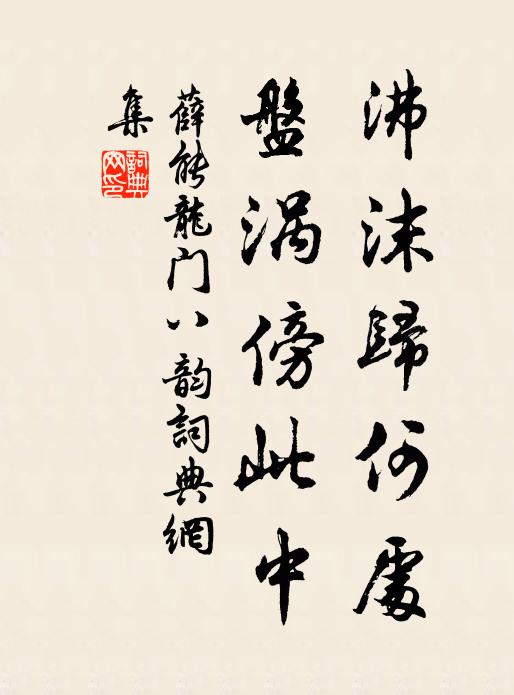 沸沫歸何處
盤渦傍此中
薛能龍门八韵詞典網
集
詞典网印